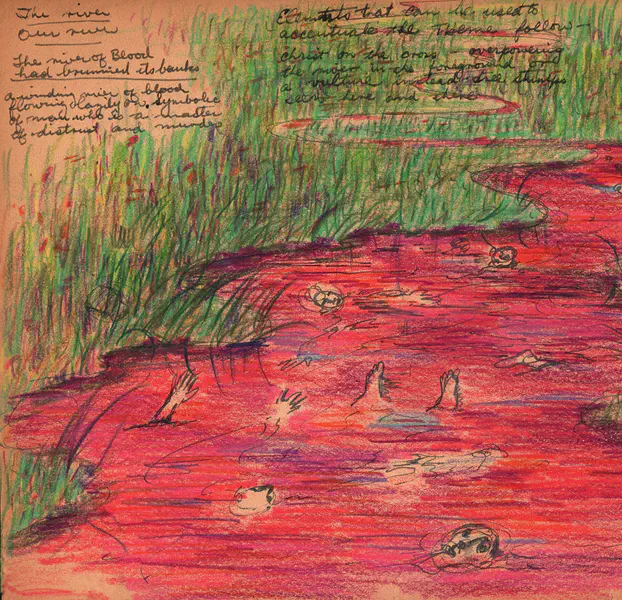 The river
Our river
The river of Blood
had brimmed its banks
a winding river of blood
flowing slowly on. symbolic
of man who is a master
of distrust and murder
Elements that can be used to
accentuate the Theme follow —
Christ on the cross — overpowering
the in the foreground and
a vertical dead tree stumps
here and there